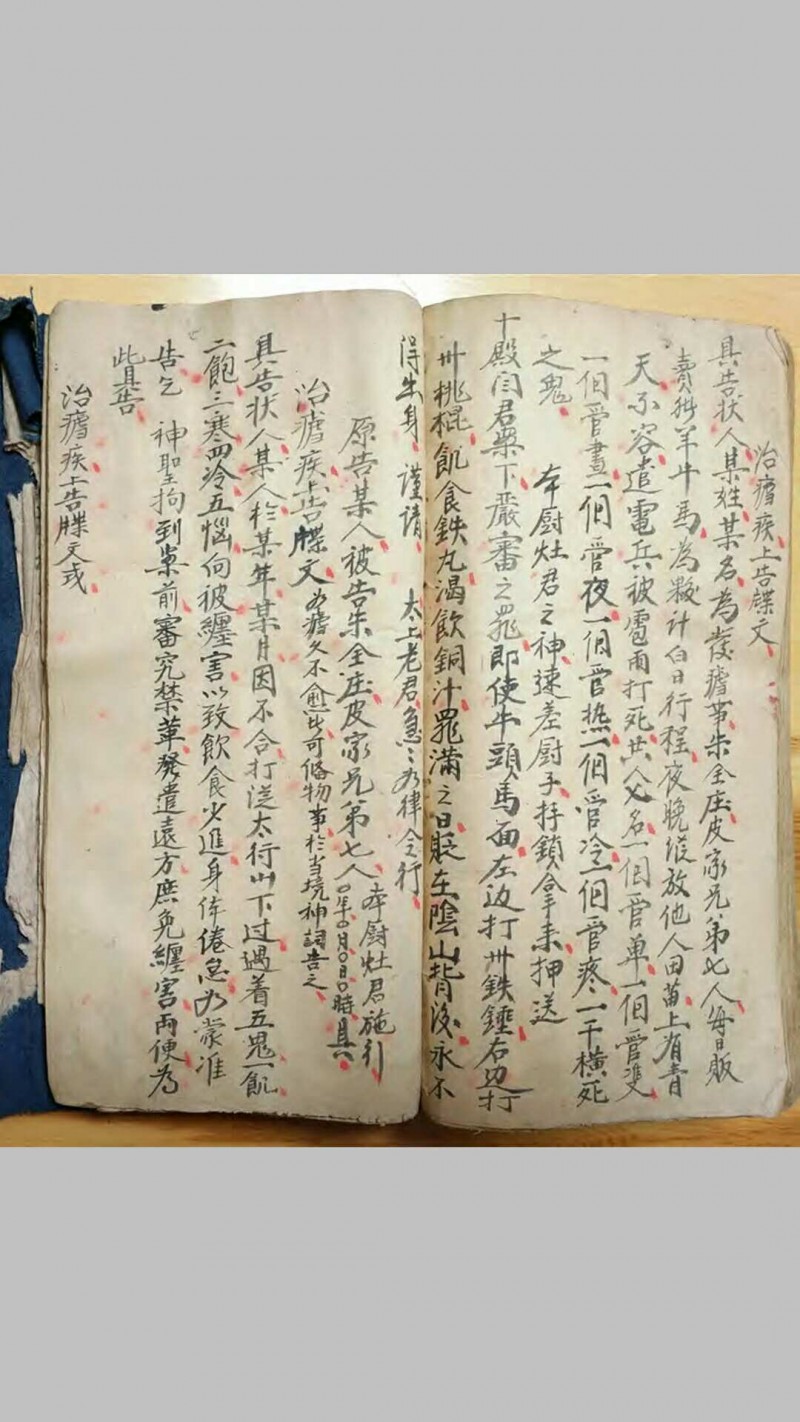 治瘧疾上告牒文
具告狀人某姓某名為發瘧事朱全庄皮家兄弟七人每日販
賣猪羊牛馬為數計白日行程夜晚縱放他人田苗上有青
天不容遣電兵被雹雨打死共人七名一個管單一個管雙
一個管晝一個管夜一個管熱一個管冷一個管疼一干橫死
之鬼 本厨灶君之神速差厨子持鎖拿来押送
十殿闫君案下嚴審之罪即使牛頭馬面左边打卅鉄錘右边打
卅桃棍飢食鉄丸渴飲銅汁罪滿之日貶在陰山背後永不
得出身 謹請 太上老君急々如律令行
原告某人被告朱全庄皮家兄弟七人 本厨灶君施行
治瘧疾上告牒文 如瘧久不愈此可俻物事於当境神詞告之 〇年〇月〇日〇時具
具告狀人某人於某年某月因不合打從太行山下过遇着五鬼一飢
二飽三寒四冷五惱何被纏害以致飲食少進身体倦怠如蒙准
告乞 神聖拘到案前審究禁革發遣遠方庶免纏害兩便為
此具告
治瘧疾上告牒文式